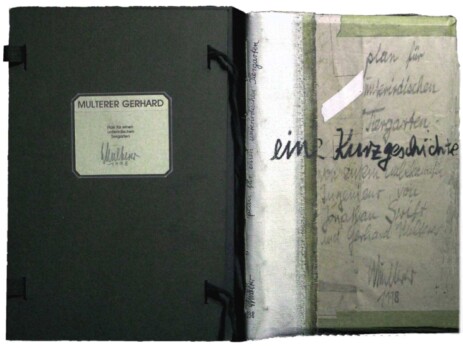 MULTERER GERHARD
Plan für einen
unterirdischen
Tiergarten
Multerer
1998
plan für einen unterirdischen tiergarten
plan für
unterirdischen
tiergarten.
eine Kurzgeschichte
von einem
Ingenieur von
Jonathan Swift
und Gerhard Multerer
Multerer
1998